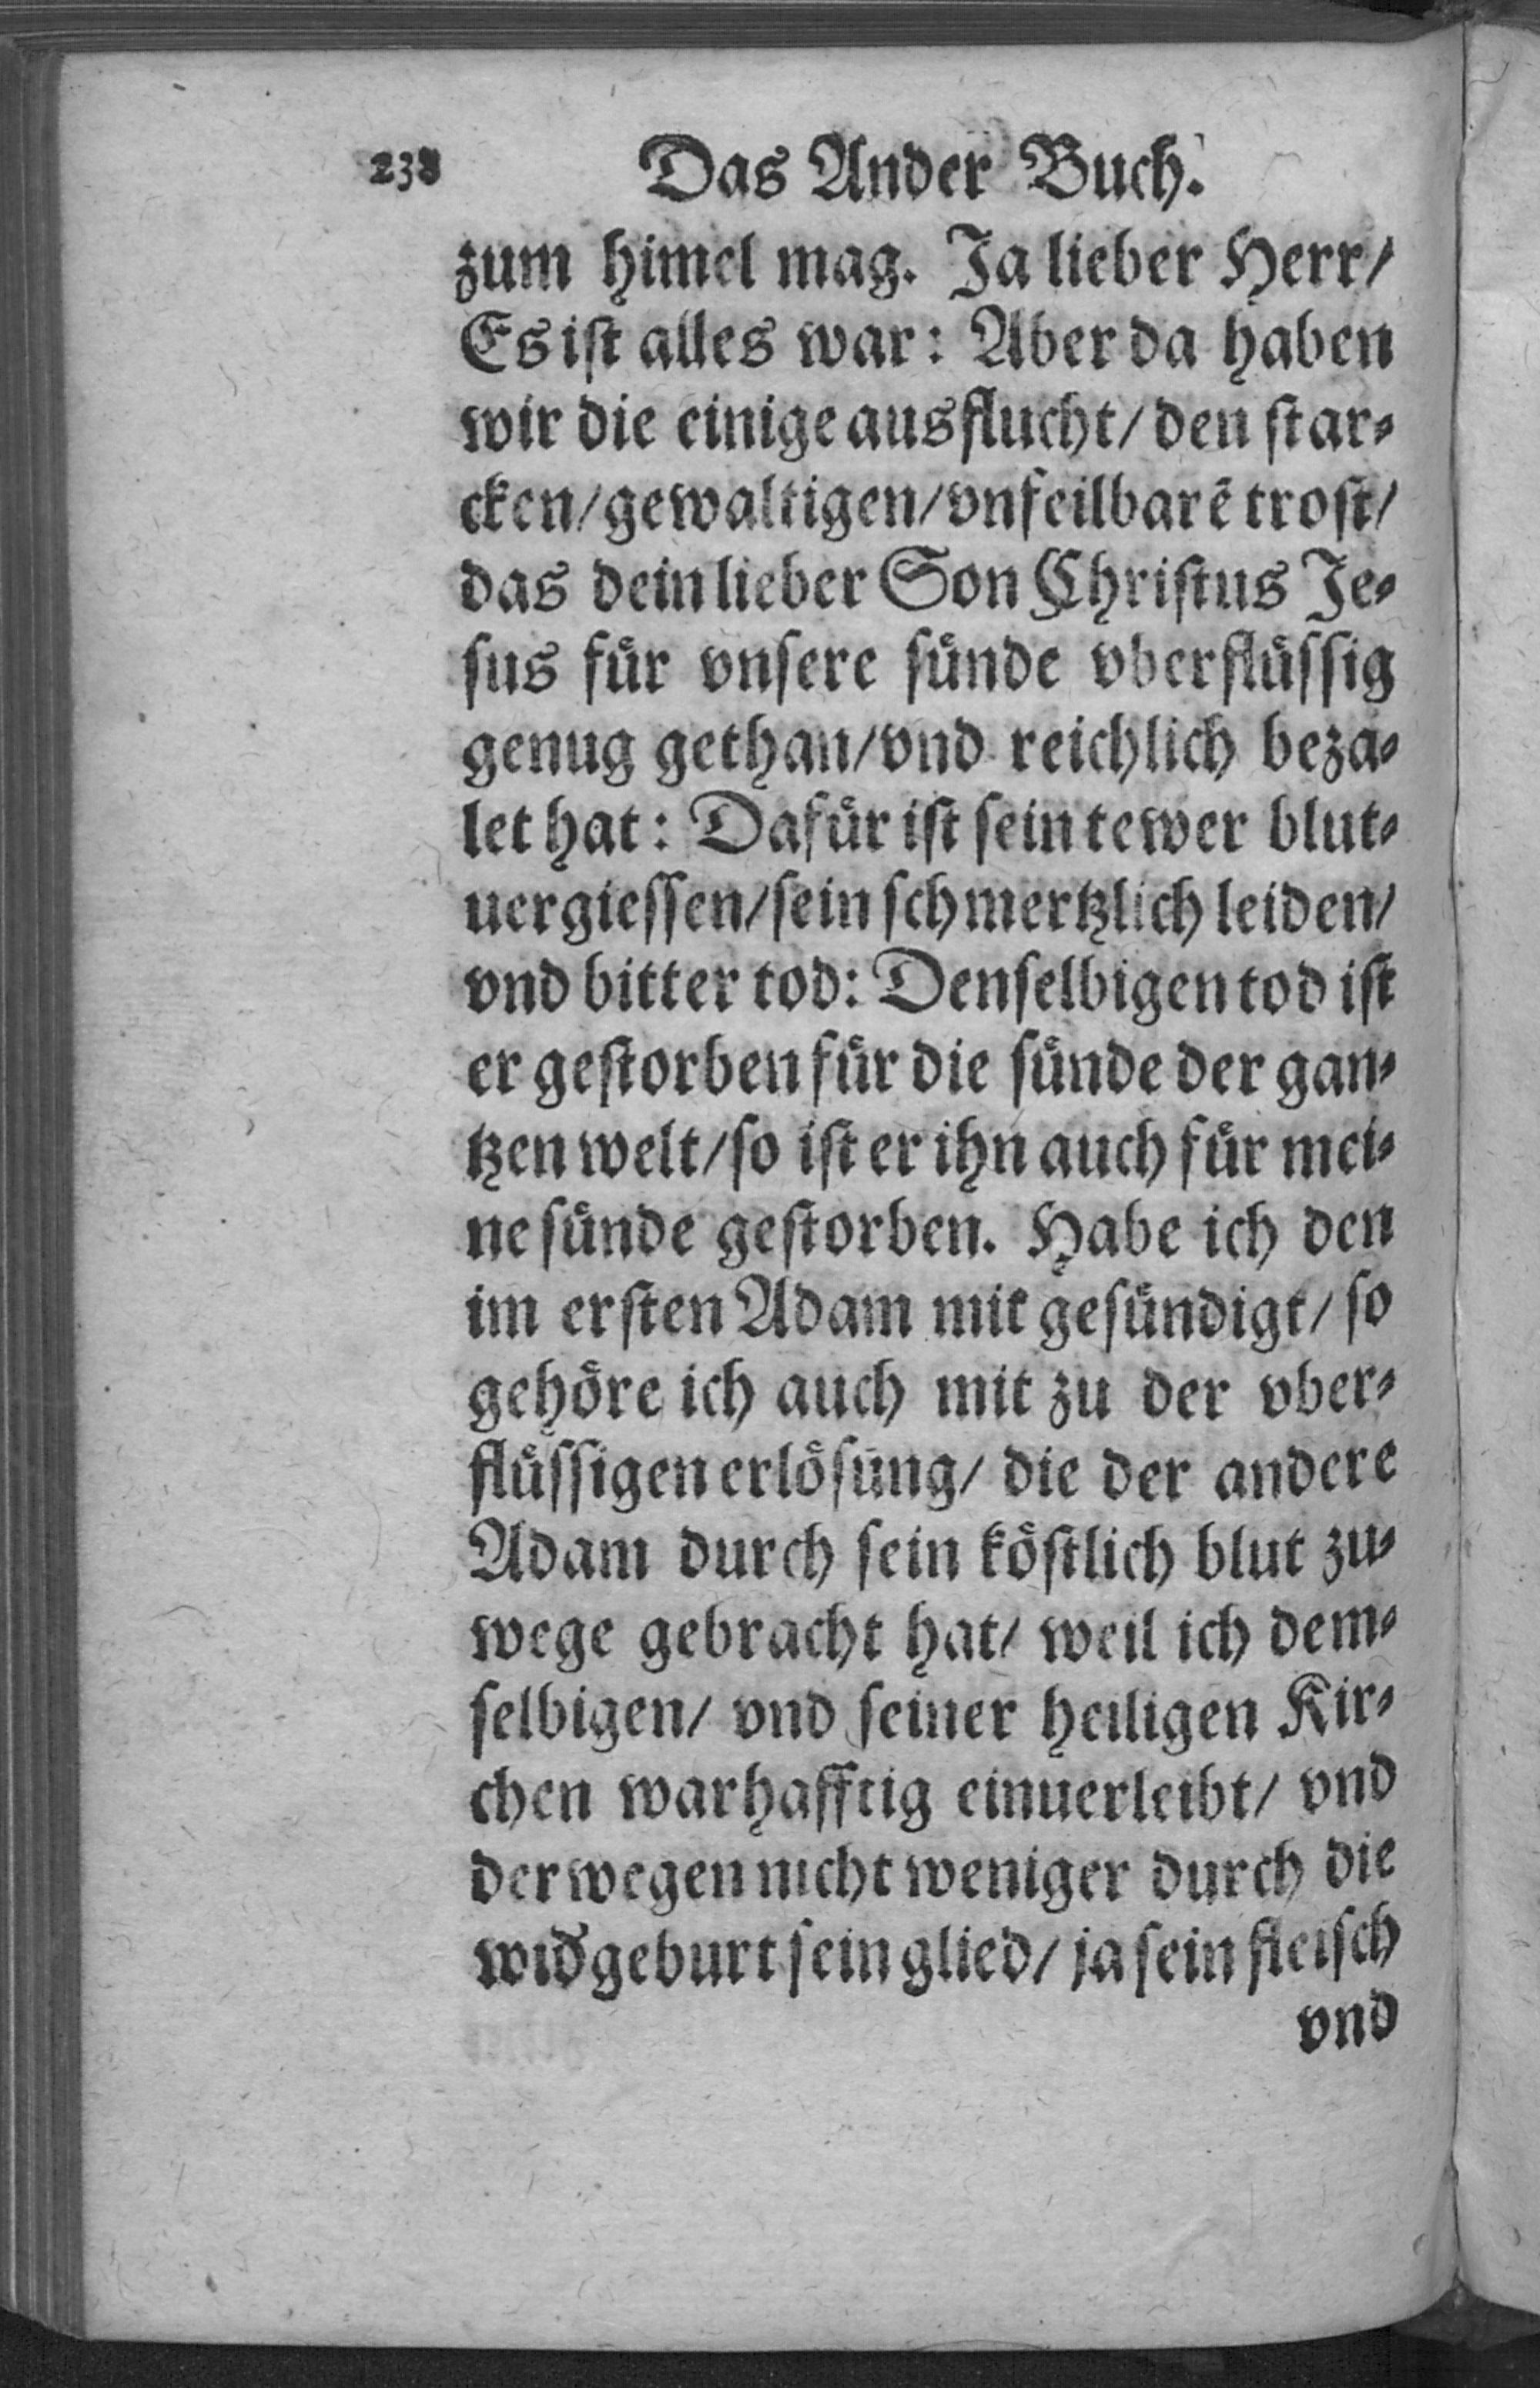 238 Das Ander Buch.
zum himel mag. Ja lieber Herr/
Es iſt alles war: Aber da haben
wir die einige ausflucht/ den ſtar⸗
cken/ gewaltigen/ vnfeilbarē troſt/
das dein lieber Son Chriſtus Je⸗
ſus fuͤr vnſere ſuͤnde vberfluͤſſig
genug gethan/ vnd reichlich beza⸗
let hat: Dafuͤr iſt ſein tewer blut⸗
uergieſſen/ ſein ſchmertzlich leiden/
vnd bitter tod: Denſelbigen tod iſt
er geſtorben fuͤr die ſuͤnde der gan⸗
tzen welt/ ſo iſt er ihn auch fuͤr mei⸗
ne ſuͤnde geſtorben. Habe ich den
im erſten Adam mit geſuͤndigt/ ſo
gehoͤre ich auch mit zu der vber⸗
fluͤſſigen erloͤſung/ die der andere
Adam durch ſein koͤſtlich blut zu⸗
wege gebracht hat/ weil ich dem⸗
ſelbigen/ vnd ſeiner heiligen Kir⸗
chen warhafftig einuerleibt/ vnd
derwegen nicht weniger durch die
wid̕geburt ſein glied/ ja ſein fleiſch
vnd